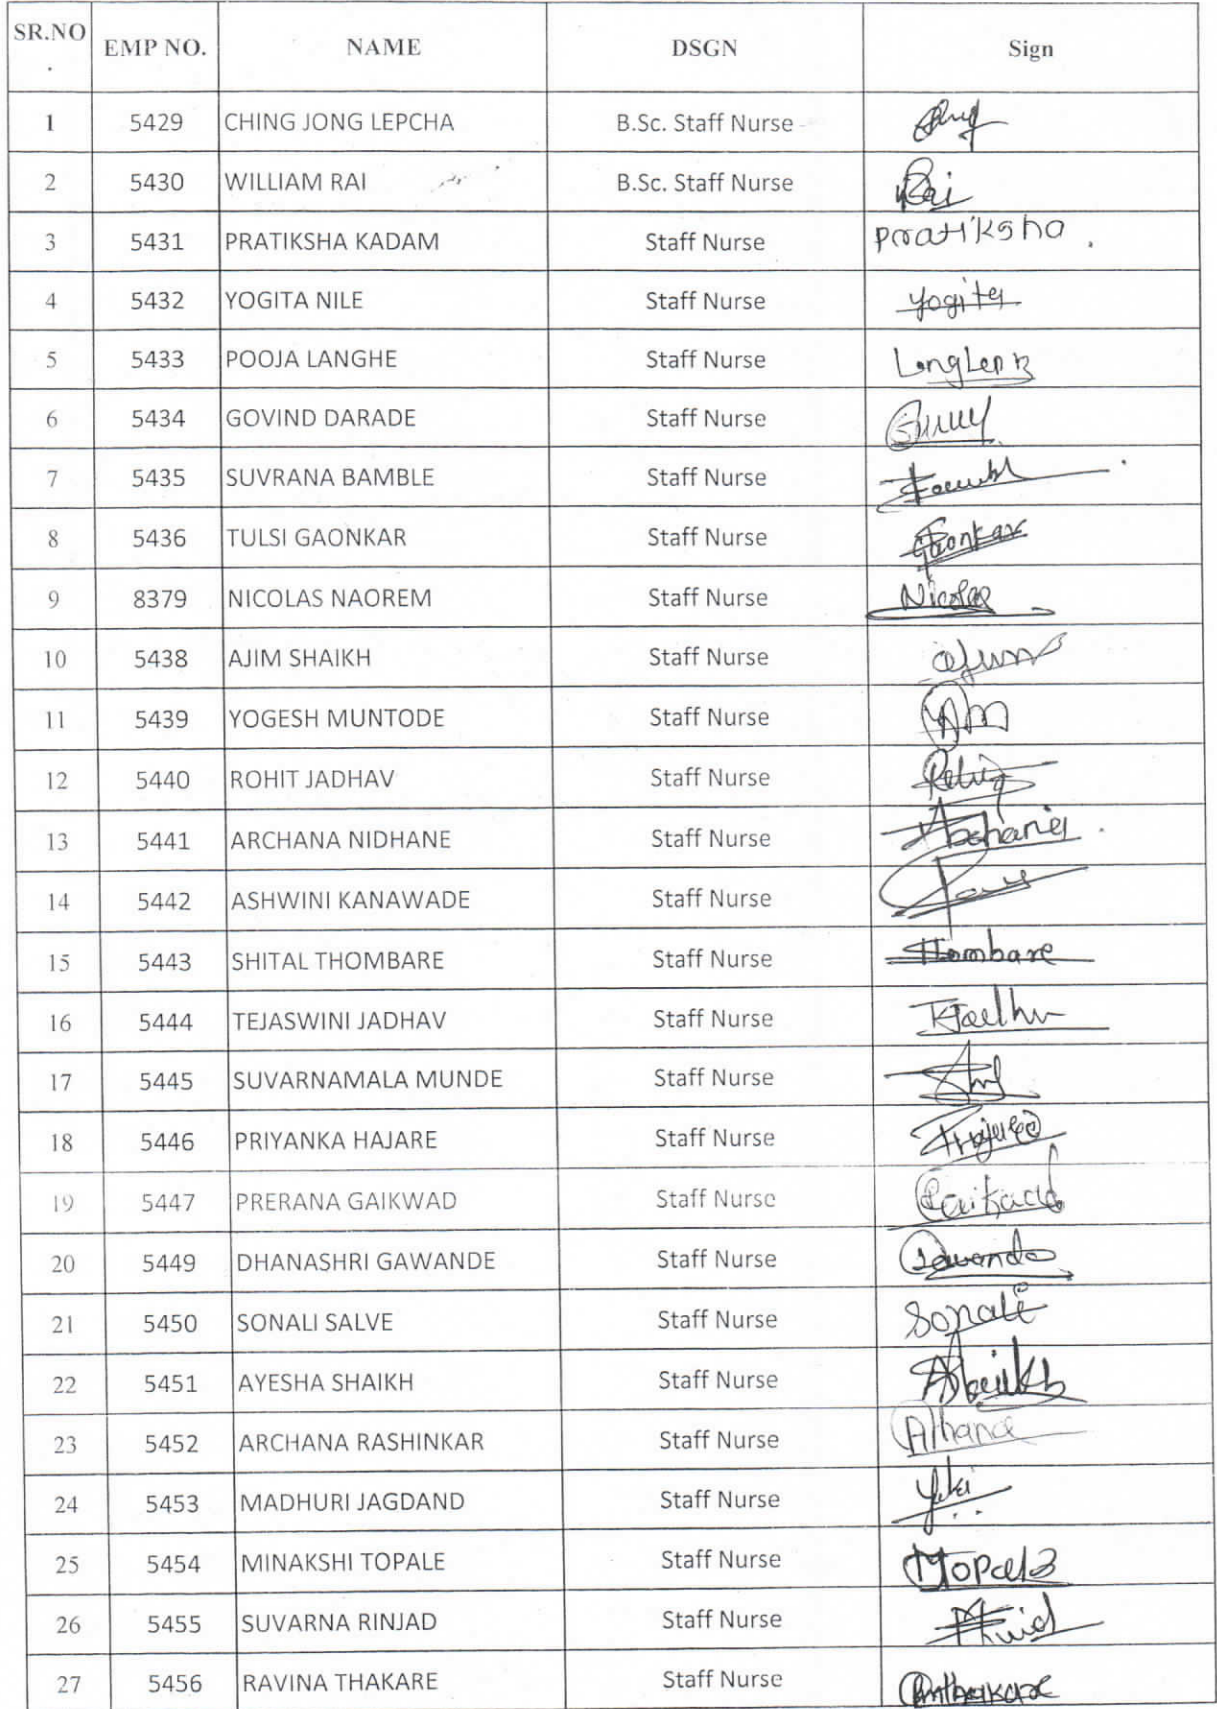 SR.NO. EMP NO. NAME DSGN Sign
1 5429 CHING JONG LEPCHA B.Sc. Staff Nurse
2 5430 WILLIAM RAI B.Sc. Staff Nurse Rai
3 5431 PRATIKSHA KADAM Staff Nurse Pratiksha.
4 5432 YOGITA NILE Staff Nurse Yogita
5 5433 POOJA LANGHE Staff Nurse
6 5434 GOVIND DARADE Staff Nurse
7 5435 SUVRANA BAMBLE Staff Nurse
8 5436 TULSI GAONKAR Staff Nurse Gaonkar
9 8379 NICOLAS NAOREM Staff Nurse Nicolas
10 5438 AJIM SHAIKH Staff Nurse
11 5439 YOGESH MUNTODE Staff Nurse
12 5440 ROHIT JADHAV Staff Nurse
13 5441 ARCHANA NIDHANE Staff Nurse
14 5442 ASHWINI KANAWADE Staff Nurse
15 5443 SHITAL THOMBARE Staff Nurse Thombare
16 5444 TEJASWINI JADHAV Staff Nurse
17 5445 SUVARNAMALA MUNDE Staff Nurse
18 5446 PRIYANKA HAJARE Staff Nurse
19 5447 PRERANA GAIKWAD Staff Nurse
20 5449 DHANASHRI GAWANDE Staff Nurse Gawande
21 5450 SONALI SALVE Staff Nurse Sonali
22 5451 AYESHA SHAIKH Staff Nurse AShaikh
23 5452 ARCHANA RASHINKAR Staff Nurse
24 5453 MADHURI JAGDAND Staff Nurse
25 5454 MINAKSHI TOPALE Staff Nurse
26 5455 SUVARNA RINJAD Staff Nurse
27 5456 RAVINA THAKARE Staff Nurse